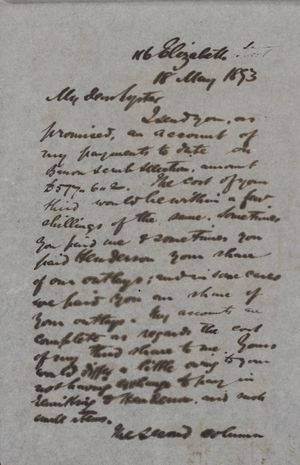 116 Elizabeth Street
18 May 1893
My dear Lyster
I send you, as
promised, an account of
my payments to date on
Scrub Selection, amount
£577-6-2. The cost of your
third would be within a few
shillings of the same. Sometimes
you paid me & sometimes you
paid Henderson your share
of our outlays; and in some cases
we paid you our share of
your outlays. My accounts are
complete as regards the cost
of my third share to me. Yours
would differ a little owing to your
not having exchange to pay in
remitting to Henderson, and such
small items.
The second column